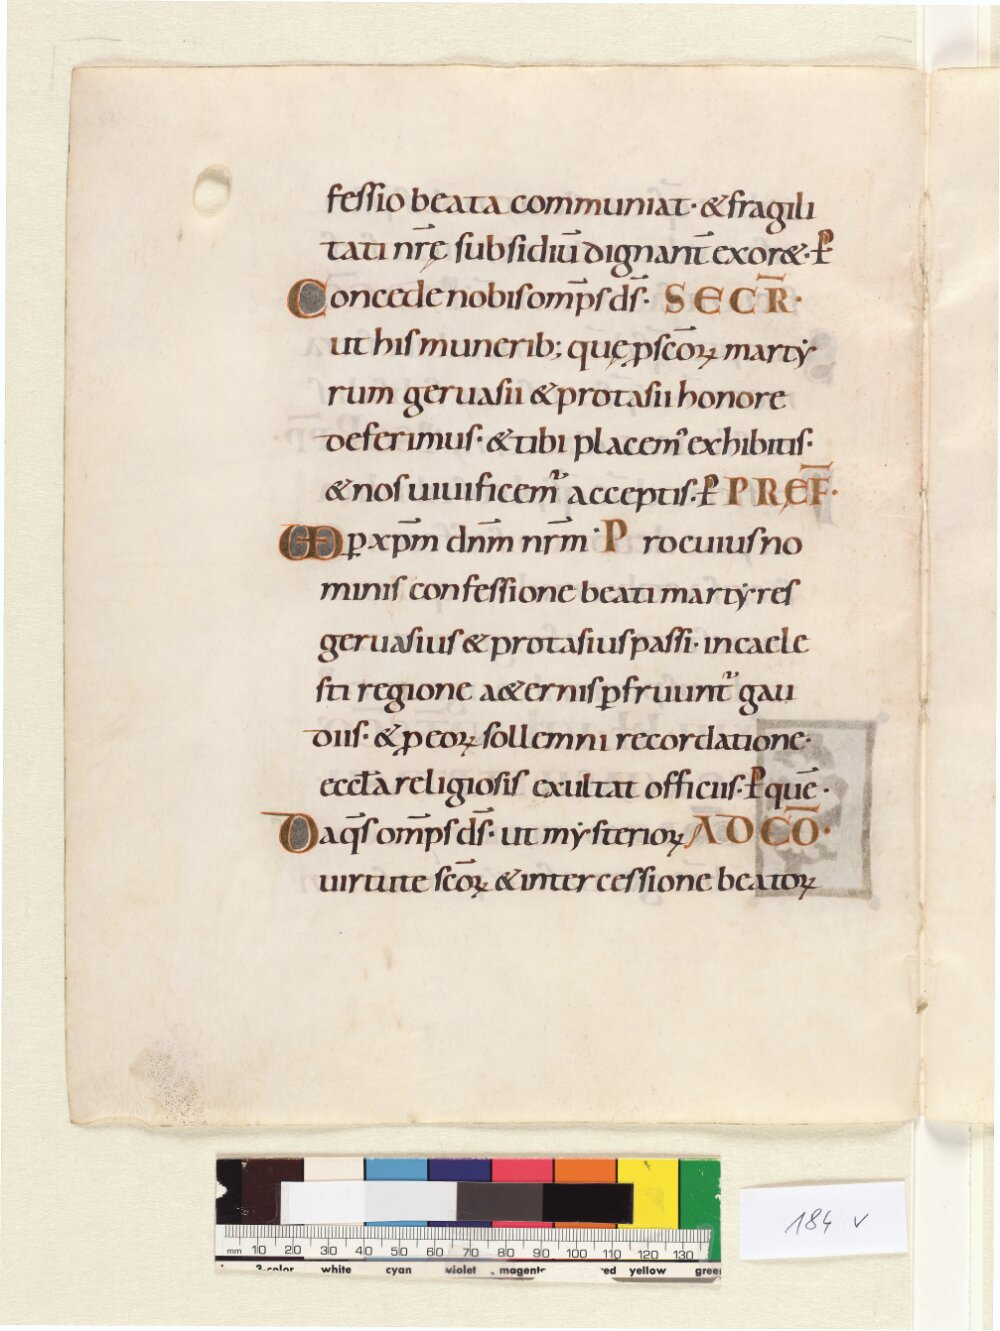 fessio beata communiat· &fragili
tati nr̄ę subsidiū dignant̄ exor&· P̄
Concede nobis om̄ps ds̄· SECR̄·
ut his munerib; quę ꝓ scōꝝ martẏ
rum geruasii & protasii honore
deferimus· & tibi placem᷒ exhibitis·
& nos uiuificem᷒ acceptis· P̄ PREF̄·
VD ꝑ xp̄m dn̄m nr̄m· Pro cuius no
minis confessione beati martẏres
geruasius & protasius passi· in caele
sti regione a&ernis ꝑfruunt᷒ gau
diis· & ꝓ eoꝝ sollemni recordatione·
eccła religiosis exultat officiis· P̄ quē·
Da qs̄ om̄ps ds̄· ut mẏsterioꝝ AD CŌ·
uirtute scōꝝ & intercessione beatoꝝ
184 v
mm 10 20 30 40 50 60 70 80 90 100 110 120 130
3-color white cyan violet magenta red yellow green